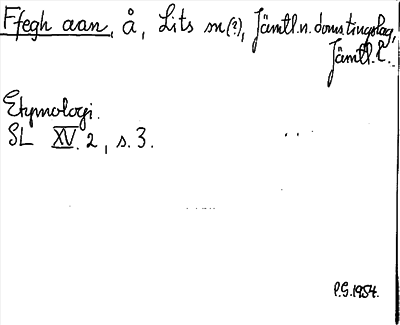 Ffegh aan, å, Lits sn (?), Jämtl. n. doms. tingslag,
Jämtl. l.
Etymologi.
SL XV. 2, s. 3.
P.G. 1954.